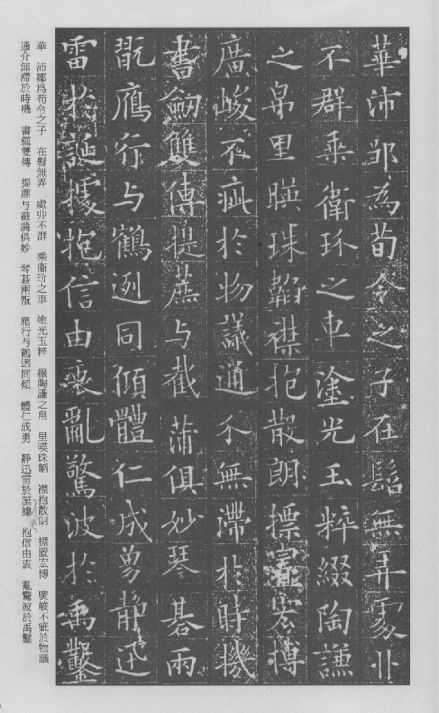 華沛鄒為荀令之子在髫無弄處丱
不群乗衛玠之車塗光玉粹綴陶謙
之帛里暎珠韜襟抱散朗摽置宏博
廣峻不疵於物議通介無滯於時機
書劒雙傳提蕉与截蒲俱妙琴碁兩
翫鴈行与鶴迾同傾體仁成勇静迅
雷於誕據抱信由衷亂驚波於禹鑿
華　沛鄒爲荀令之子　在髫無弄　處丱不群　乘衛玠之車　塗光玉粹　綴陶謙之帛　里暎珠韜　襟抱散朗　摽置宏博　廣峻不疵於物議
通介無滯於時機　書劒雙傳　提蕉与截蒲俱妙　琴碁兩翫　鴈行与鶴迾同傾　體仁成勇　靜迅雷於誕據　抱信由衷　亂驚波於禹鑿